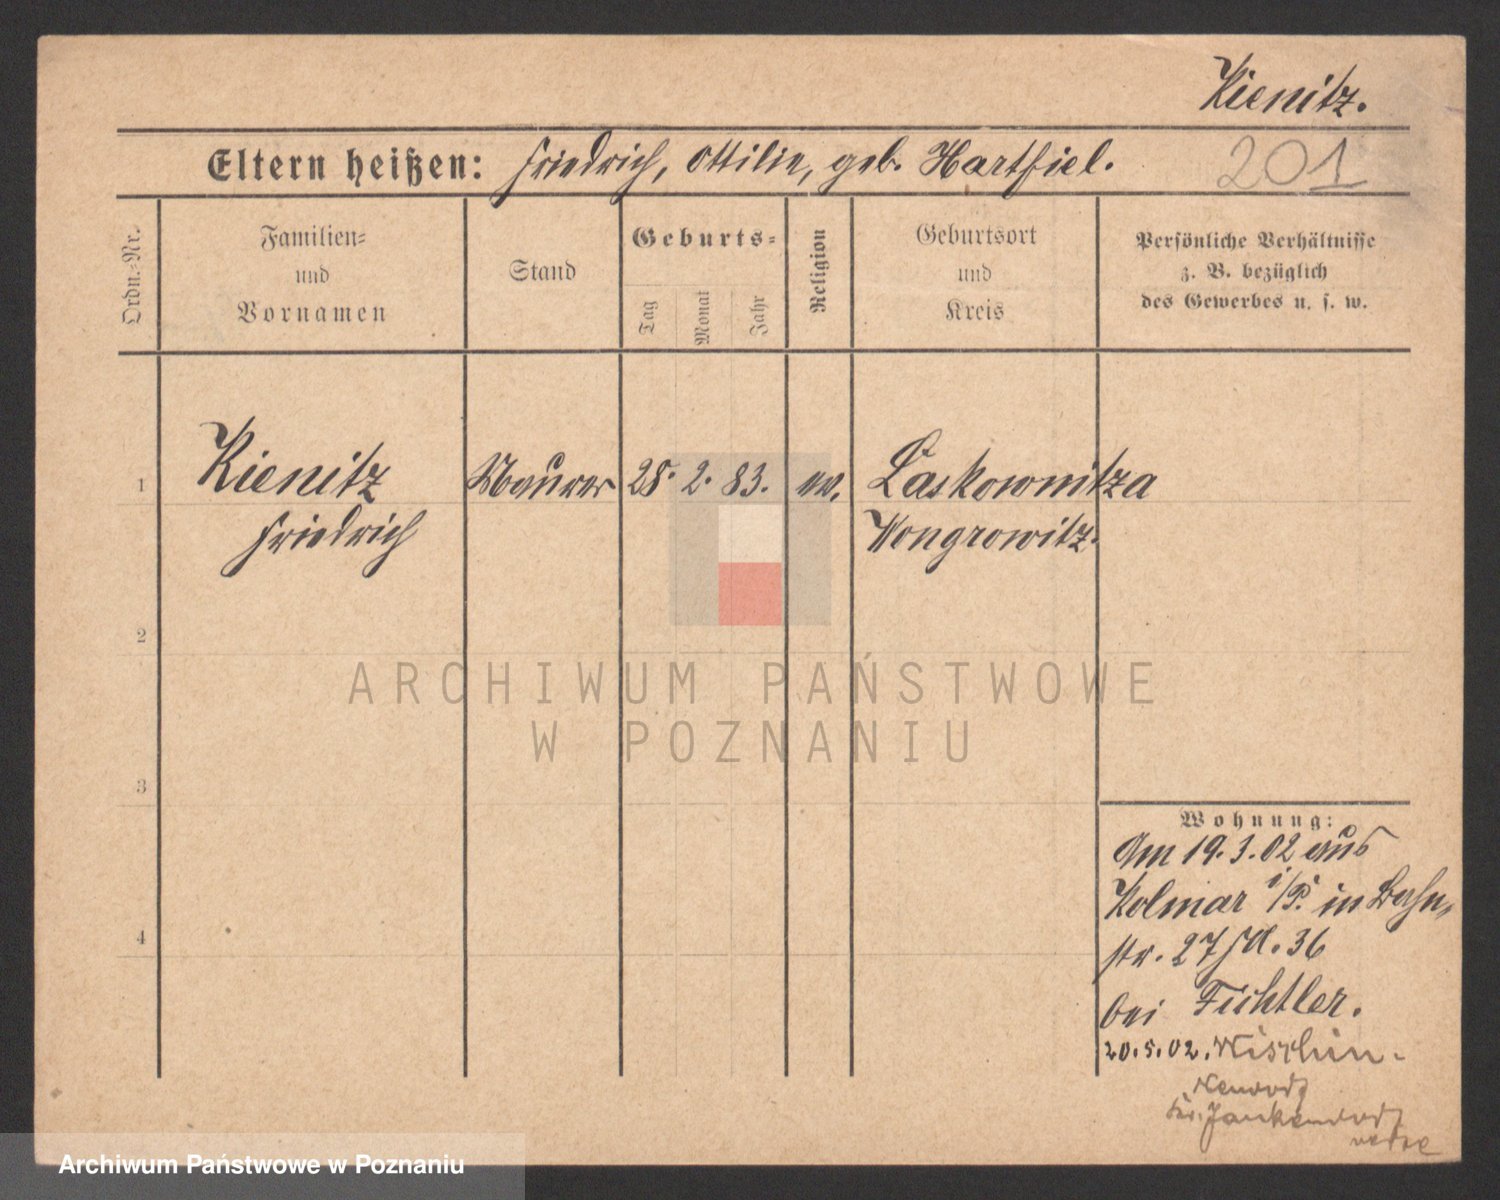 Kienitz.
Eltern heißen: Friedrich, Ottilie, geb. Hartfiel.
201
Ordn.-Nr.
Familien-
und
Vornamen
Stand
Geburts-
Tag
Monat
Jahr
Religion
Geburtsort
und
Kreis
Persönliche Verhältnisse
z. B. bezüglich
des Gewerbes u. s. w.
1 Kienitz Maurer 28. 2. 83. ev. Laskownitza
Friedrich Wongrowitz.
2
3
4
ARCHIWUM PAŃSTWOWE
W POZNANIU
Wohnung:
Am 19.3.02 aus
Kolmar i/P. in Bahn-
str. 27 36
bei Fichtler.
20.5.02.
Archiwum Państwowe w Poznaniu